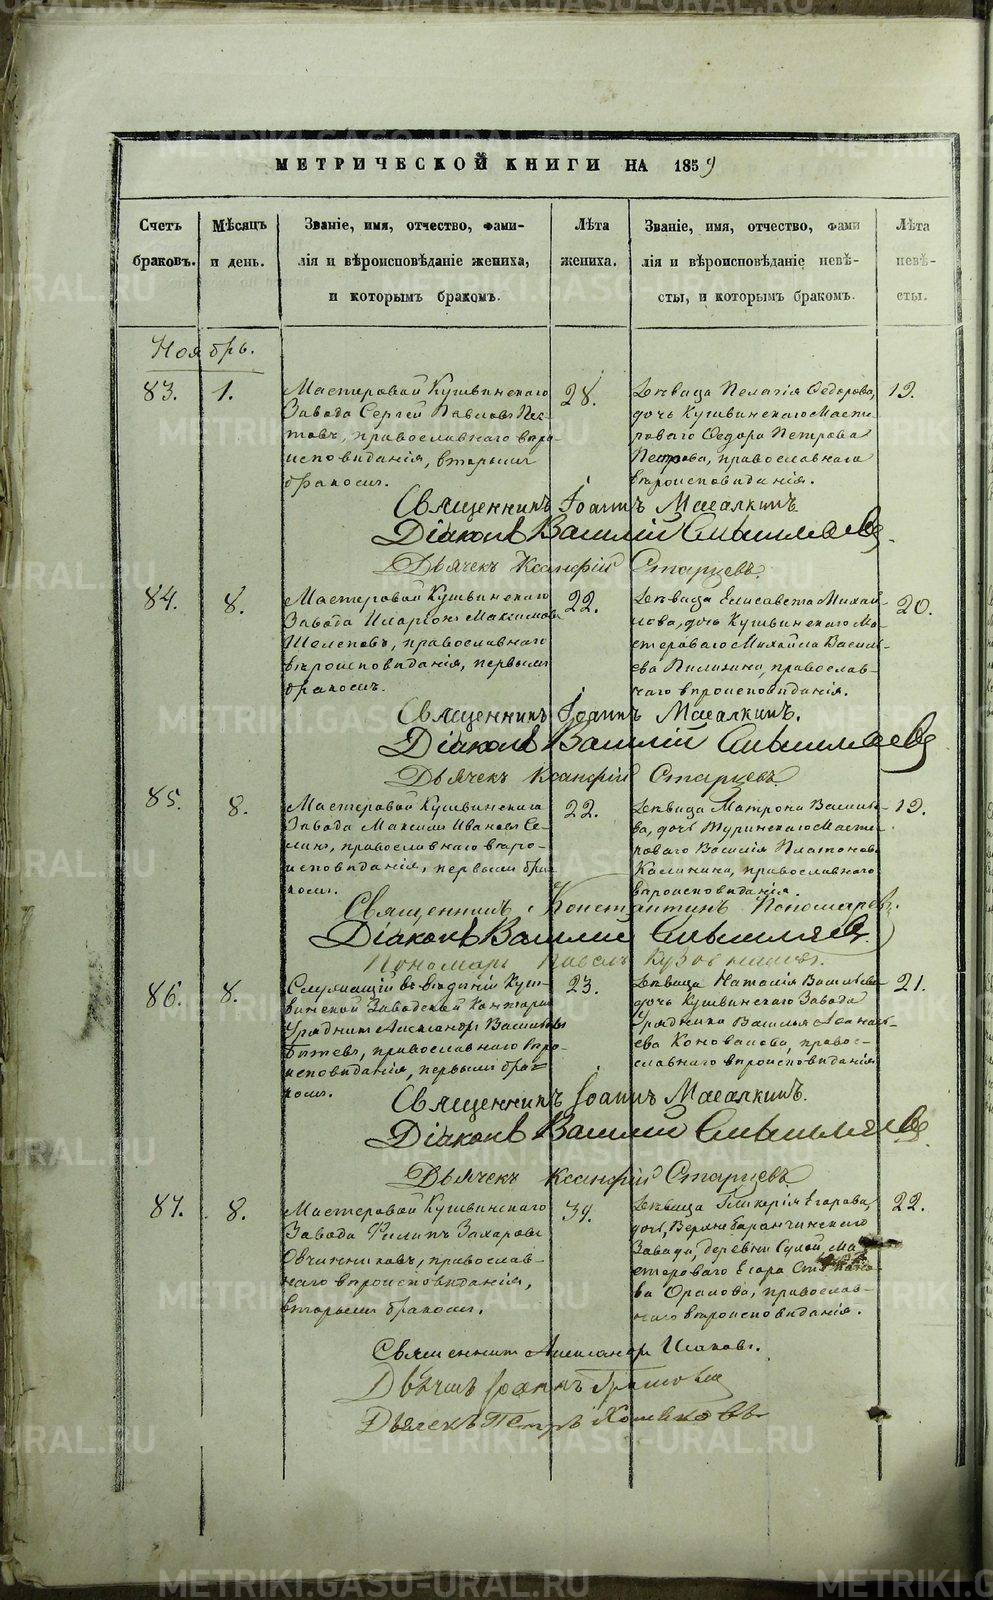 МЕТРИЧЕСКОЙ КНИГИ НА 1859
Счетъ браковъ.
Мѣсяцъ и день.
Званіе, имя, отчество, фами-
лія и вѣроисповѣданіе жениха,
и которымъ бракомъ.
Лѣта жениха.
Званіе, имя, отчество, фами
лія и вѣроисповѣданіе невѣ-
сты, и которымъ бракомъ.
Лѣта невѣ-
сты.
Ноябрь.
83. 1.
Мастеровой Кушвинскаго
Завода Сергей Павловъ
православнаго вѣро-
исповѣданія, вторымъ
бракомъ.
28.
Дѣвица Пелагія Федорова,
дочь Кушвинскаго Масте-
роваго Федора Петрова
Петрова, православнаго
вѣроисповѣданія.
19.
Священникъ Іоаннъ Масалкинъ
Діаконъ Василій
Дьячекъ Ксанфій Старцевъ.
84. 8.
Мастеровой Кушвинскаго
Завода Иларіонъ Максимовъ
Шелеповъ, православнаго
вѣроисповѣданія, первымъ
бракомъ.
22.
Дѣвица Елисавета Михай-
лова, дочь Кушвинскаго Ма-
стероваго Михайла Василь-
ева православ-
наго вѣроисповѣданія.
20.
Священникъ Іоаннъ Масалкинъ.
Діаконъ Василій
Дьячекъ Ксанфій Старцевъ.
85. 8.
Мастеровой Кушвинскаго
Завода Максимъ Ивановъ Се-
линъ, православнаго вѣро-
исповѣданія, первымъ бра-
комъ.
22.
Дѣвица Матрона Василье-
ва, дочь Туринскаго Масте-
роваго Василія Платонова
Калинина, православнаго
вѣроисповѣданія.
19.
Священникъ Константинъ Пономаревъ.
Діаконъ Василій
Пономарь Павелъ
86. 8.
Служащій въ Куш-
винской Заводской Конторѣ
Урядникъ Александръ Васильевъ
православнаго вѣро-
исповѣданія, первымъ бра-
комъ.
23.
Дѣвица Наталія Васильева
дочь Кушвинскаго Завода
Урядника Василья Афанась-
ева Коновалова, право-
славнаго вѣроисповѣданія
21.
Священникъ Іоаннъ Масалкинъ.
Діаконъ Василій
Дьячекъ Ксанфій Старцевъ.
87. 8.
Мастеровой Кушвинскаго
Завода Филипъ Захаровъ
Овчинниковъ, православ-
наго вѣроисповѣданія,
вторымъ бракомъ.
39.
Дѣвица Гликерія Егорова,
дочь, Верхнебаранчинскаго
Завода, деревни Сухой, Ма-
стероваго Егора Степано-
ва Орлова, православ-
наго вѣроисповѣданія.
22.
Священникъ Александръ
Іоаннъ
Дьячекъ Петръ
METRIKI.GASO-URAL.RU